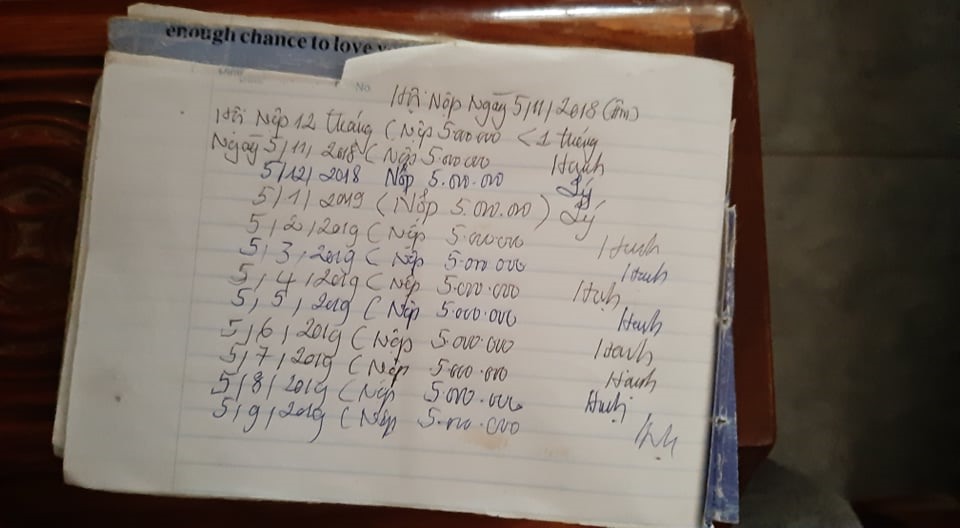 enough chance to love
No
Hũi Nộp Ngày 5/11/2018 (Âm)
Hũi Nộp 12 tháng (Nộp 500.000 < 1 tháng
Ngày 5/11/2018 (Nộp 5.000.000 Hạnh
5/12/2018 Nộp 5.000.000 Lý
5/1/2019 (Nộp 5.000.000) Lý
5/2/2019 (Nộp 5.000.000 Hạnh
5/3/2019 (Nộp 5.000.000 Hạnh
5/4/2019 (Nộp 5.000.000 Hạnh
5/5/2019 (Nộp 5.000.000 Hạnh
5/6/2019 (Nộp 5.000.000 Hạnh
5/7/2019 (Nộp 5.000.000 Hạnh
5/8/2019 (Nộp 5.000.000 Hạnh
5/9/2019 (Nộp 5.000.000